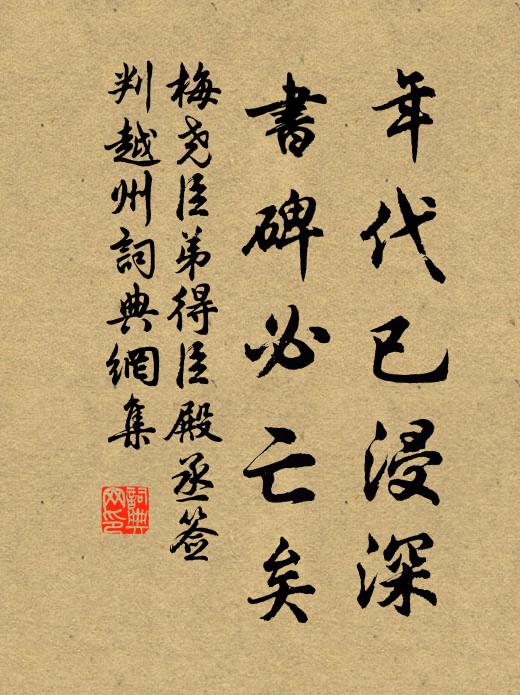 年代已浸深
書碑必亡矣
梅尧臣弟得臣殿丞签
判越州詞典網集
詞典
网印